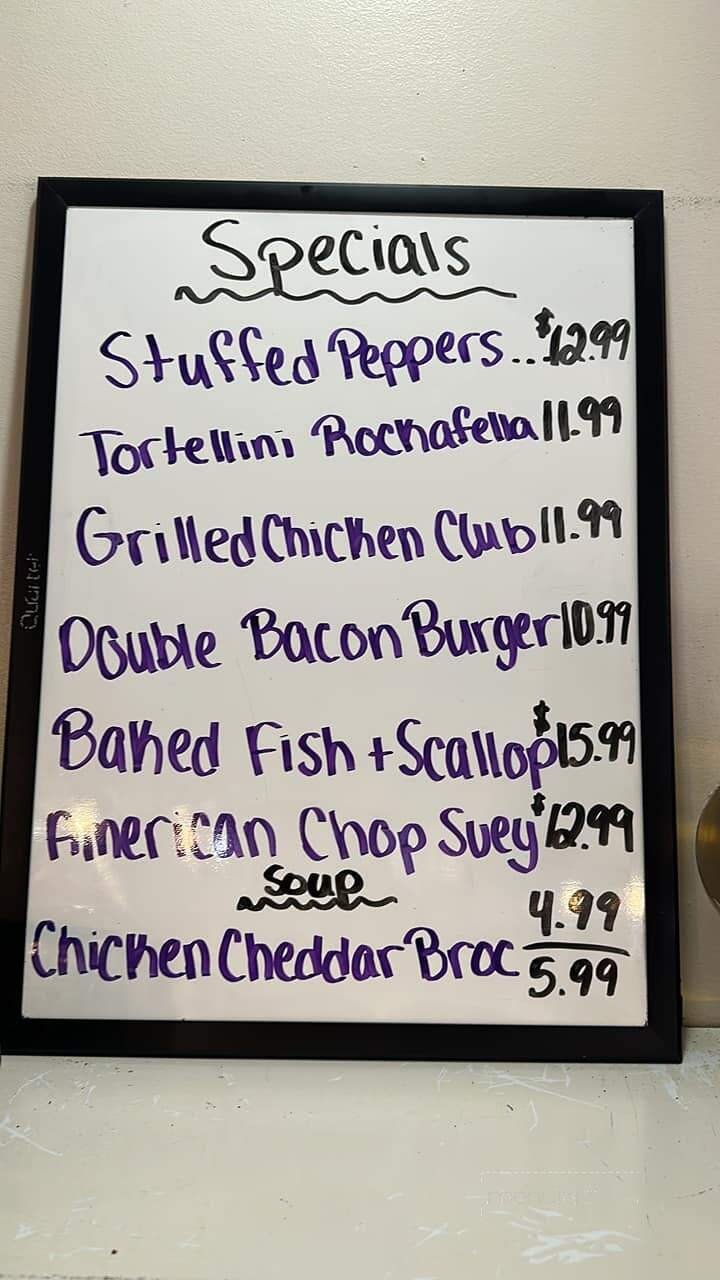 Specials
Stuffed Peppers..$12.99
Tortellini Rockafella 11.99
Grilled Chicken Club 11.99
Double Bacon Burger 10.99
Baked Fish + Scallop $15.99
American Chop Suey $12.99
Soup
Chicken Cheddar Broc 4.99
5.99
Quartet